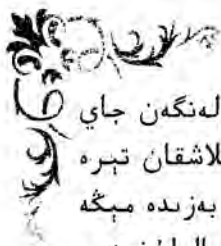 لەنگەن جاي
لاشقان تېرە
بەزىدە مىڭە